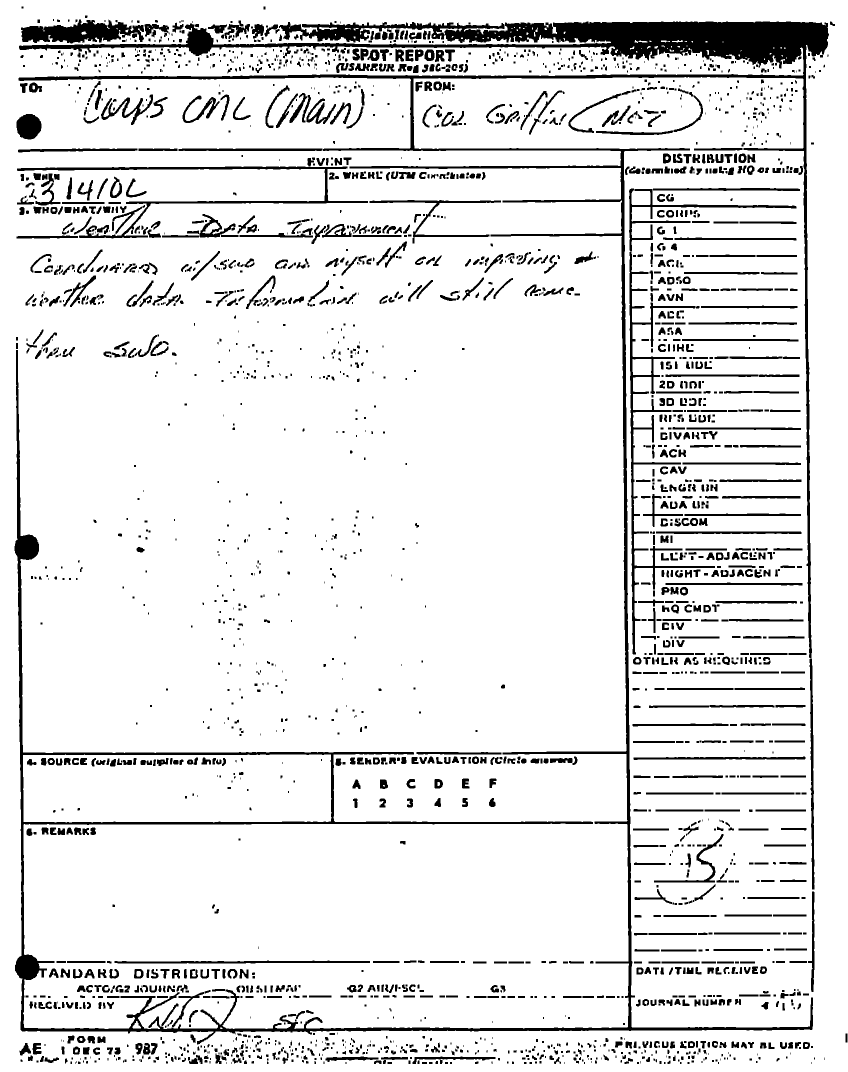 Classification
SPOT REPORT
(USAREUR Reg 380-205)
TO: Corps CML (Main)
FROM: Col Griffin
EVENT
DISTRIBUTION
(determined by using HQ or units)
1. WHEN
231410L
2. WHERE (UTM Coordinates)
3. WHO/WHAT/WHY
Weather Data Improvement
Coordinated w/ SWO and myself on improving
weather data - Information will still come
thru SWO.
CG
CORPS
G 1
G 4
ACE
ADSO
AVN
ADE
ASA
1ST BDE
2D BDE
3D BDE
RES BDE
DIVARTY
ACR
CAV
ENGR BN
ADA BN
DISCOM
MI
LEFT-ADJACENT
RIGHT-ADJACENT
PMO
HQ CMDT
DIV
DIV
OTHER AS REQUIRED
4. SOURCE (original supplier of info)
5. SENDER'S EVALUATION (Circle answers)
A B C D E F
1 2 3 4 5 6
6. REMARKS
15
STANDARD DISTRIBUTION:
ACTG/G2 JOURNAL G2 AIR/FSCL G3
DATE/TIME RECEIVED
RECEIVED BY SFC
JOURNAL NUMBER
AE FORM 1 DEC 73 987
PREVIOUS EDITION MAY BE USED.